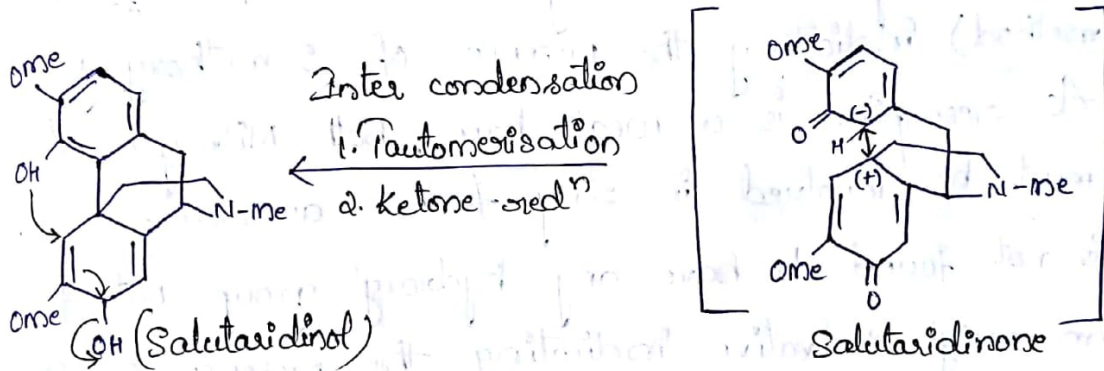 OMe
OH
N-Me
OMe
OH (Salutaridinol)
Inter condensation
1. Tautomerisation
2. Ketone redⁿ
OMe
O
H
(-)
(+)
N-Me
OMe
O
Salutaridinone